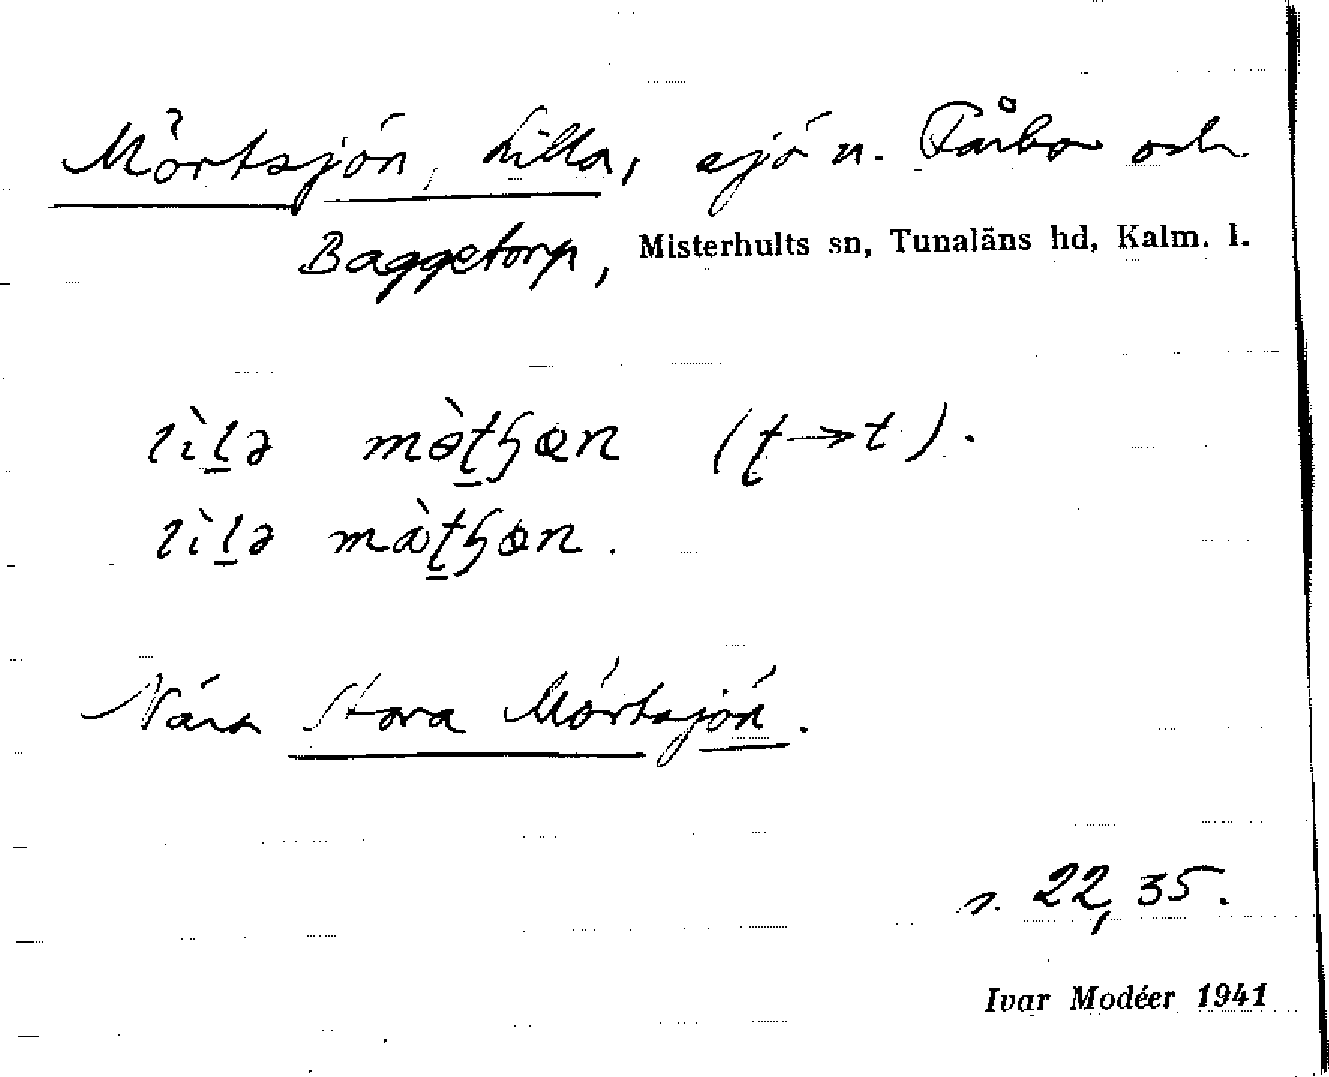 Mörtsjön, Lilla, sjö n. Fårbo och
Baggetorp, Misterhults sn, Tunaläns hd, Kalm. l.
lìḷə mə̀ʈɧœn (ʈ→t).
lìḷə màʈɧœn.
Nära Stora Mörtsjön.
s. 22, 35.
Ivar Modéer 1941